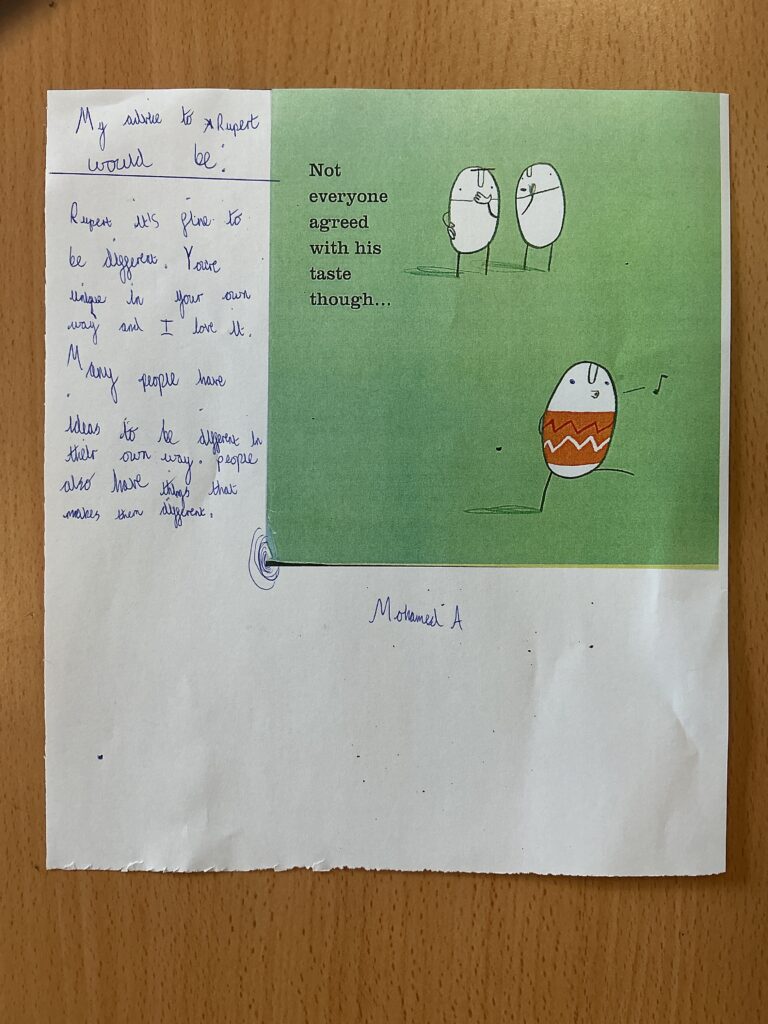 My advice to Rupert
would be:
Rupert it's fine to
be different. You're
unique in your own
way and I love it.
Many people have
ideas to be different in
their own way. people
also have things that
makes them different.
Not
everyone
agreed
with his
taste
though...
Mohamed A